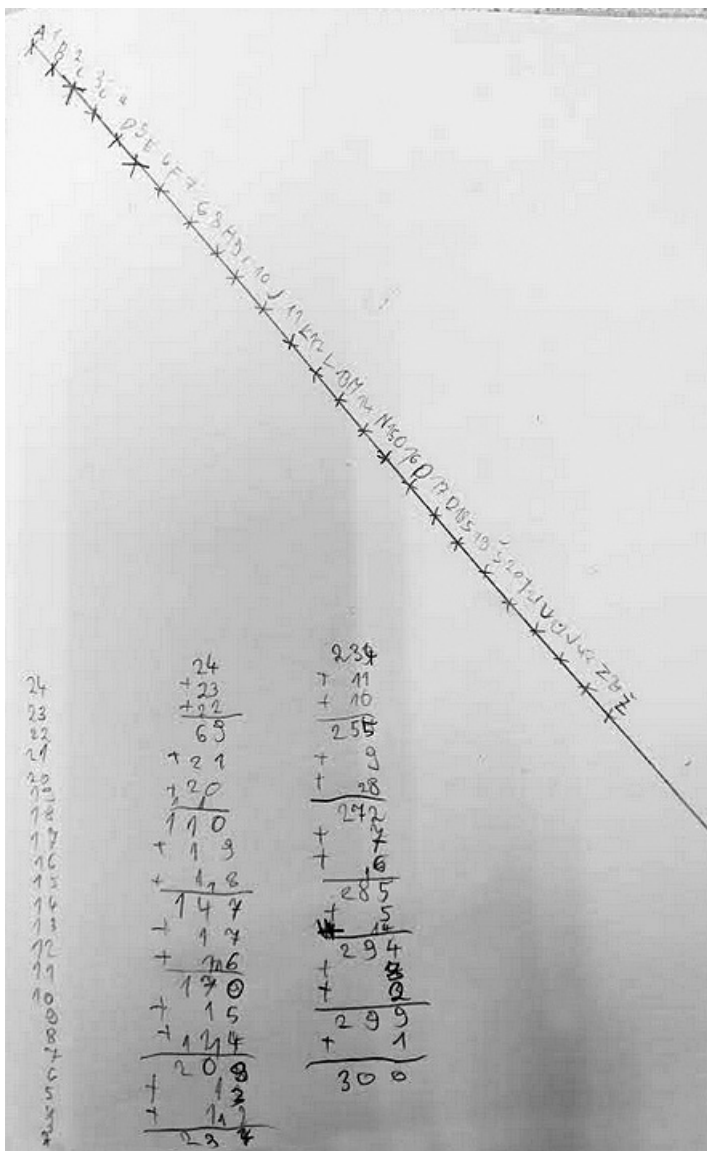 A 1 B 2 C 3 Č 4 D 5 E 6 F 7 G 8 H 9 I 10 J 11 K 12 L 13 M 14 N 15 O 16 P 17 R 18 S 19 Š 20 T 21 U 22 V 23 Z 24 Ž
24
23
22
21
20
19
18
17
16
15
14
13
12
11
10
9
8
7
6
5
24
+ 23
+ 22
69
+ 21
+ 20
110
+ 19
+ 18
147
+ 17
+ 16
170
+ 15
+ 14
209
+ 13
+ 12
234
234
+ 11
+ 10
255
+ 9
+ 8
272
+ 7
+ 6
285
+ 5
+ 4
294
+ 3
+ 2
299
+ 1
300